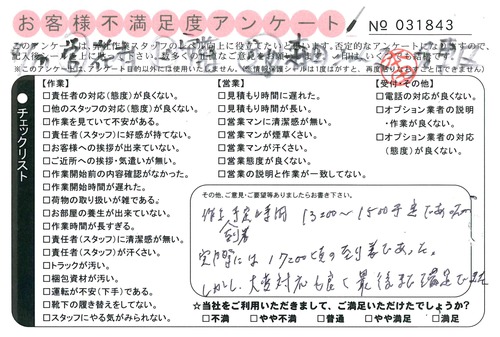 お客様不満足度アンケート
No 031843
チェックリスト
【作業】
□責任者の対応(態度)が良くない。
□他のスタッフの対応(態度)が良くない。
□作業を見ていて不安がある。
□責任者(スタッフ)に好感が持てない。
□お客様への挨拶が出来ていない。
□ご近所への挨拶・気遣いが無い。
□作業開始前の内容確認がなかった。
□作業開始時間が遅れた。
□荷物の取り扱いが雑である。
□お部屋の養生が出来ていない。
□作業時間が長すぎる。
□責任者(スタッフ)に清潔感が無い。
□責任者(スタッフ)が汗くさい。
□トラックが汚い。
□梱包資材が汚い。
□運転が不安(下手)である。
□靴下の履き替えをしてない。
□スタッフにやる気がみられない。
【営業】
□見積もり時間に遅れた。
□見積もり時間が長い。
□営業マンに清潔感が無い。
□営業マンが煙草くさい。
□営業マンが汗くさい。
□営業態度が良くない。
□営業の説明と作業が一致してない。
【受付・その他】
□電話の対応が良くない。
□オプション業者の説明
・作業が良くない。
□オプション業者の対応
(態度)が良くない。
その他、ご意見・ご要望等ありましたらお書き下さい。
13:00〜15:00予定であったが
到着
実際には17:00頃の到着であった。
しかし、大変対応も良く最後まで満足でした
☆当社をご利用いただきまして、ご満足いただけたでしょうか?
□不満 □やや不満 □普通 □やや満足 □満足